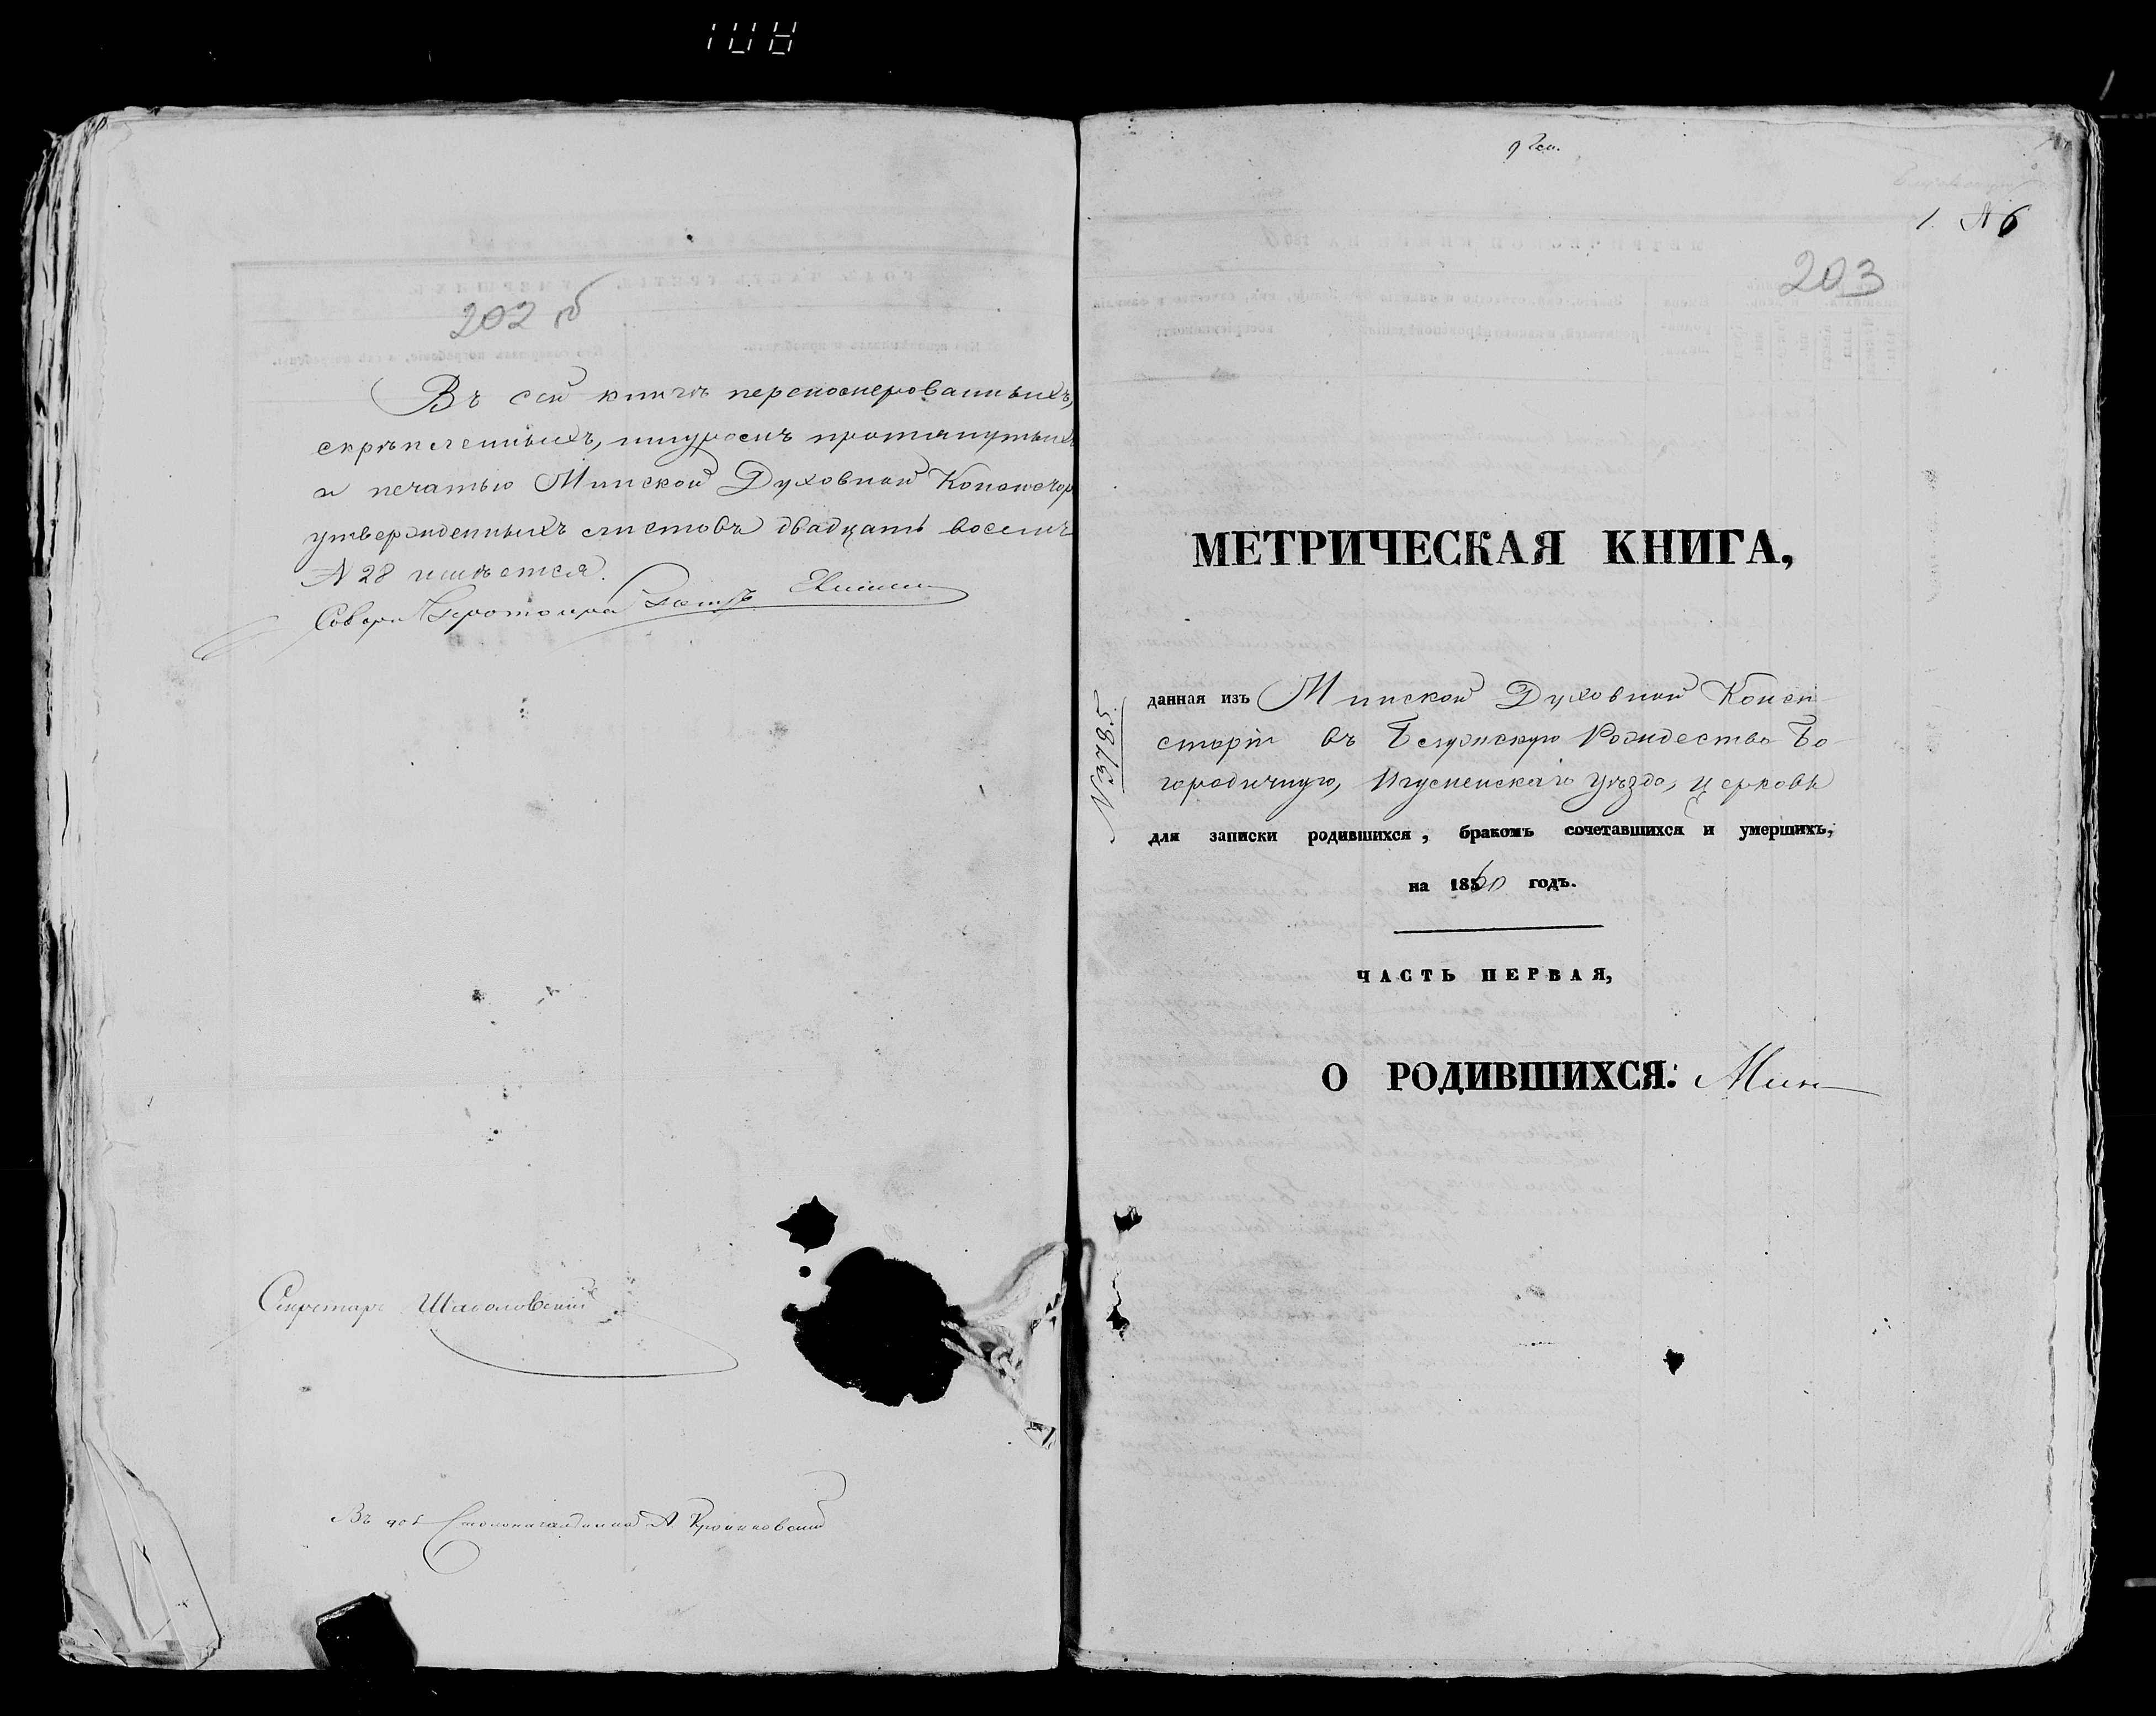 202 б
Въ сей книгѣ перенoмерованныхъ,
скрѣпленныхъ, шнуромъ протянутыхъ
и печатью Минской Духовной Консистор
утвержденныхъ листовъ двадцать восемь
№ 28 имѣется.
Секретарь Шаболовский
Въ дол Столоначальника А. Кринковский
1 № 6
203
МЕТРИЧЕСКАЯ КНИГА,
данная изъ Минской Духовной Конси-
сторіи въ Белужскую Рождество Бо-
городичную, Игуменскаго уѣзда, церковь
№ 5785
для записки родившихся, бракомъ сочетавшихся и умершихъ,
на 1860 годъ.
ЧАСТЬ ПЕРВАЯ,
О РОДИВШИХСЯ: Мин